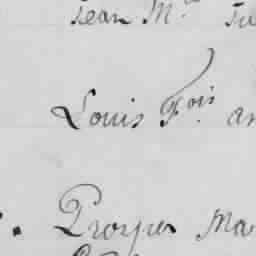 Jean M.
Louis F.ois an
Prosper Ma